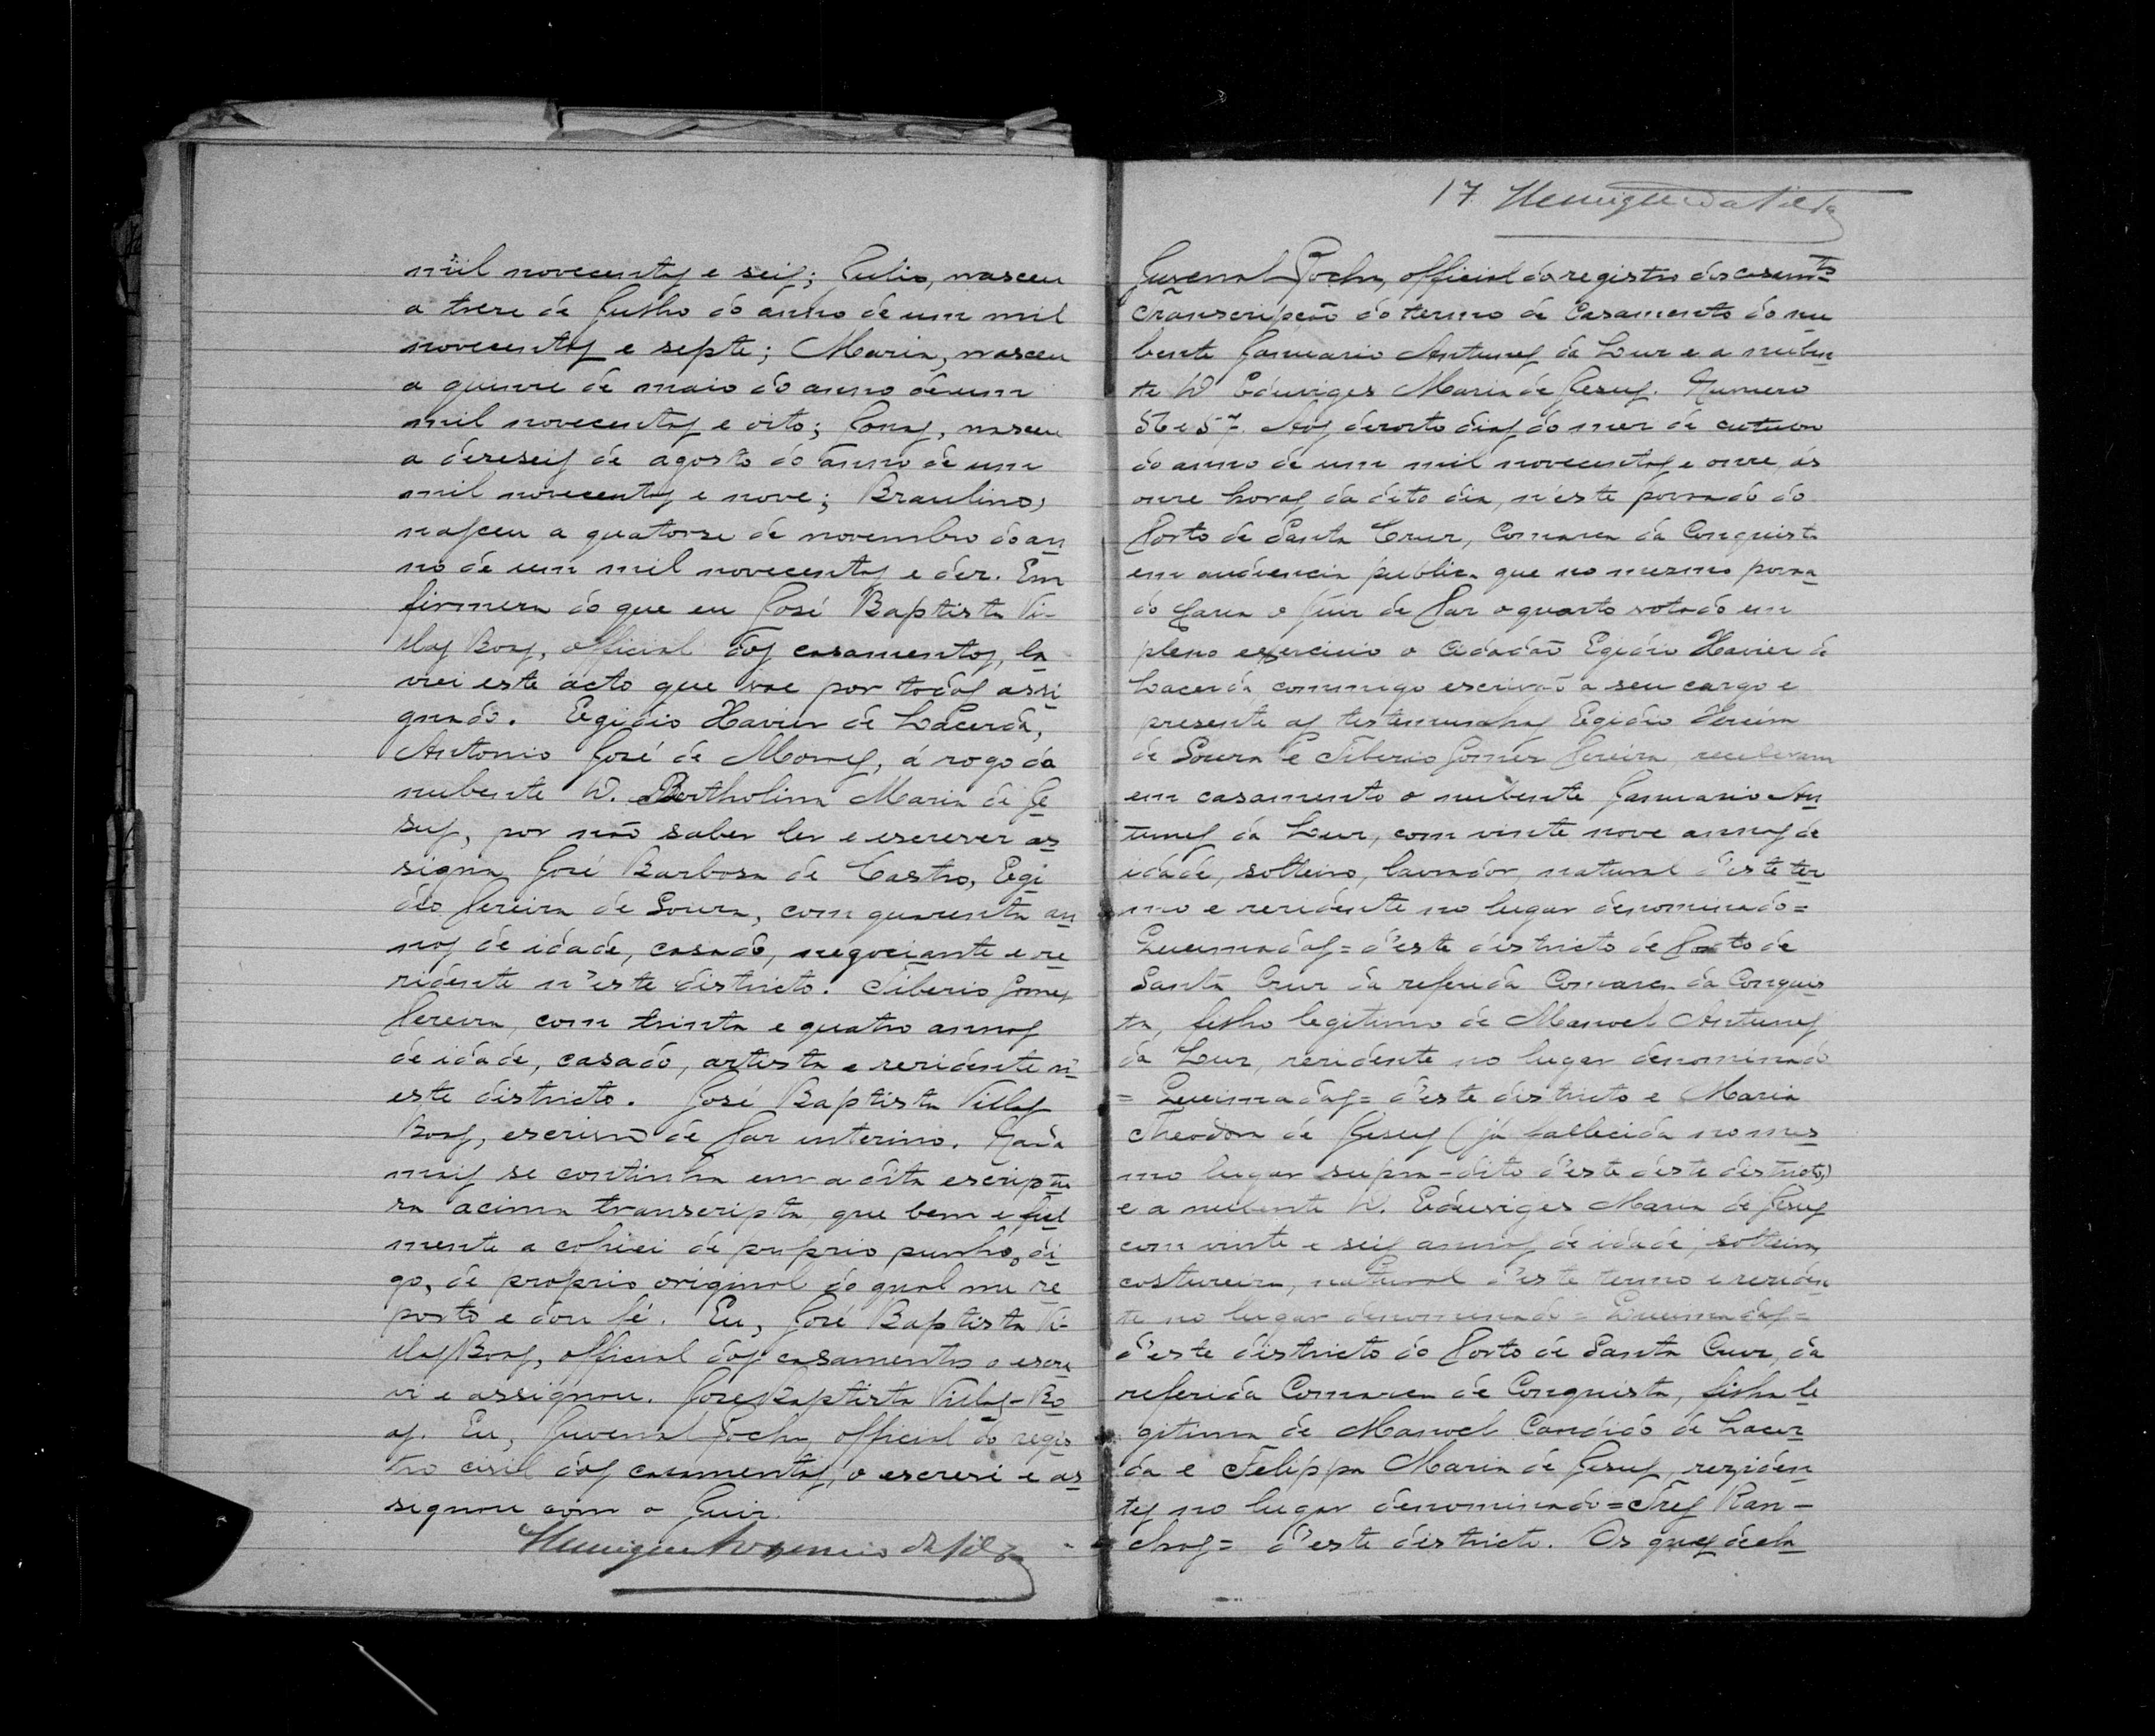 mil novecentos e seis; Julio, nasceu
a treze de Julho do anno de um mil
novecentos e septe; Maria, nasceu
a quinze de maio do anno de um
mil novecentos e oito; Jonas, nasceu
a dezeseis de agosto do anno de um
mil novecentos e nove; Braulino,
nasceu a quatorze de novembro do an
no de um mil novecentos e dez. Em
firmeza do que eu José Baptista Vi-
llas Boas, official dos casamentos, la
vrei este acto que vae por todos assi
gnado. Egidio Xavier de Lacerda,
Antonio José de Moraes, á rogo da
nubente D. Bertholina Maria de Je
sus, por não saber ler e escrever as
signa José Barbosa de Castro, Egi
dio Pereira de Souza, com quarenta an
nos de idade, casado, negociante e re
zidente n'este districto. Tiberio Gomes
Pereira, com trinta e quatro annos
de idade, casado, artista e rezidente n'
este districto. José Baptista Villas
Boas, escrivão de Paz interino. Nada
mais se continha em a dita escriptu
ra acima transcripta que bem e fiel
mente a cohiei de proprio punho, di
go, de proprio original do qual me re
porto e dou fé. Eu, José Baptista Vi-
llas Boas, official dos casamentos o escre
vi e assignou. José Baptista Villas-Bo
as. Eu, Juvenal Rocha official do regis
tro civil dos casamentos, o escrevi e as
signou com o Juiz.
Henrique da Silva
17 Henrique da Silva
Juvenal Rocha, official do registro dos casamtos
Transcripção do termo de Casamento do nu
bente Januario Antunes da Luz e a nuben
te D. Eduviges Maria de Jesus. Numero
56 e 57. Aos dezoito dias do mez de outubro
do anno de um mil novecentos e onze, ás
onze horas da dito dia, n'este povoado do
Porto de Santa Cruz, Comarca da Conquista
em audiencia publica que no mesmo povoa
do fazia o Juiz de Paz o quarto votado em
pleno exercicio o Cidadão Egidio Xavier de
Lacerda commigo escrivão a seu cargo e
presente as testemunhas Egidio Pereira
de Souza e Tiberio Gomes Pereira, receberam
em casamento o nubente Januario An
tunes da Luz, com vinte nove annos de
idade, solteiro, lavrador, natural d'este ter
mo e rezidente no lugar denominado=
Queimadas= d'este districto de Porto de
Santa Cruz da referida Comarca da Conquis
ta, filho legitimo de Manoel Antunes
da Luz, rezidente no lugar denominado
= Queimadas= d'este districto e Maria
Theodora de Jesus (já fallecida no mes
mo lugar supra-dito d'este deste districto)
e a nubente D. Eduviges Maria de Jesus
com vinte e seis annos de idade, solteira,
costureira, natural d'este termo e reziden
te no lugar denominado = Queimadas=
d'este districto do Porto de Santa Cruz, da
referida Comarca de Conquista, filha le
gitima de Manoel Candido de Lacer
da e Felippa Maria de Jesus, reziden
tes no lugar denominado=Tres Ran-
chos= d'este districto. Os quaes decla